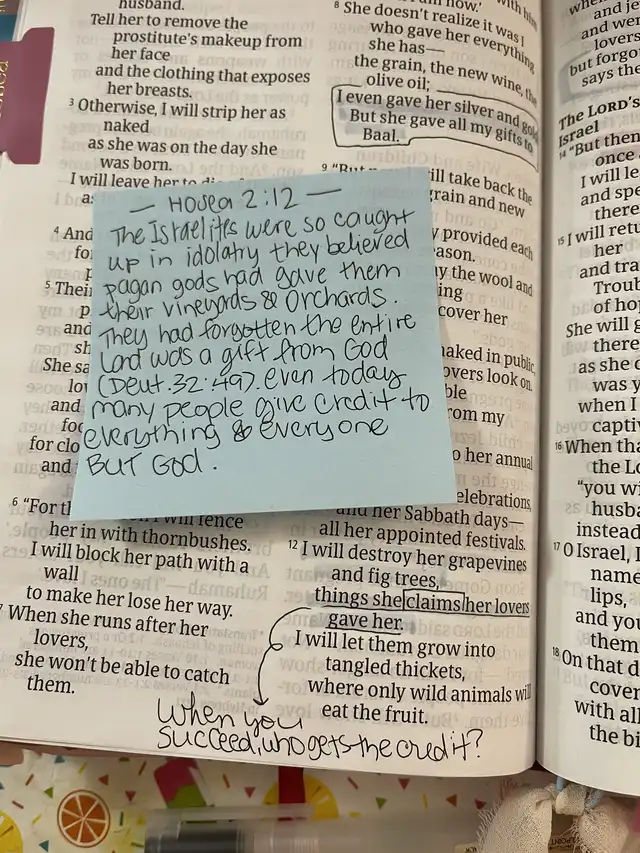 husband.
Tell her to remove the
prostitute's makeup from
her face
and the clothing that exposes
her breasts.
3 Otherwise, I will strip her as
naked
as she was on the day she
was born.
I will leave her to
as
4 And
fo
5 Thei
and
sh
She sa
lo
and
foo
for clo
and
6 "For th I will fence
her in with thornbushes.
I will block her path with a
wall
to make her lose her way.
7 When she runs after her
lovers,
she won't be able to catch
them.
— Hosea 2:12 —
The Israelites were so caught
up in idolatry they believed
pagan gods had gave them
their vineyards & Orchards.
They had forgotten the entire
Lord was a gift from God
(Deut. 32:49). even today
many people give credit to
everything & everyone
BUT GOD.
now.' with him
8 She doesn't realize it was I
who gave her everything
she has—
the grain, the new wine, the
olive oil;
I even gave her silver and gold
But she gave all my gifts to
Baal.
9 "But now will take back the
grain and new
y provided each
eason.
y the wool and
ing
cover her
naked in public,
overs look on.
ble
rom my
o her annual
elebrations,
and her Sabbath days—
all her appointed festivals.
12 I will destroy her grapevines
and fig trees,
things she claims her lovers
gave her.
I will let them grow into
tangled thickets,
where only wild animals will
eat the fruit.
When you
succeed, who gets the credit?
when
and je
and wer
lovers
but forgo
says the
The LORD's
Israel
14 "But then
once
I will le
and spe
there
15 I will retu
her
and tra
Troub
of hop
She will g
there
as she d
was y
when I
captiv
16 When tha
the Lo
"you wi
husba
instead
17 O Israel, I
name
lips,
and you
them
18 On that d
cover
with all
the bi